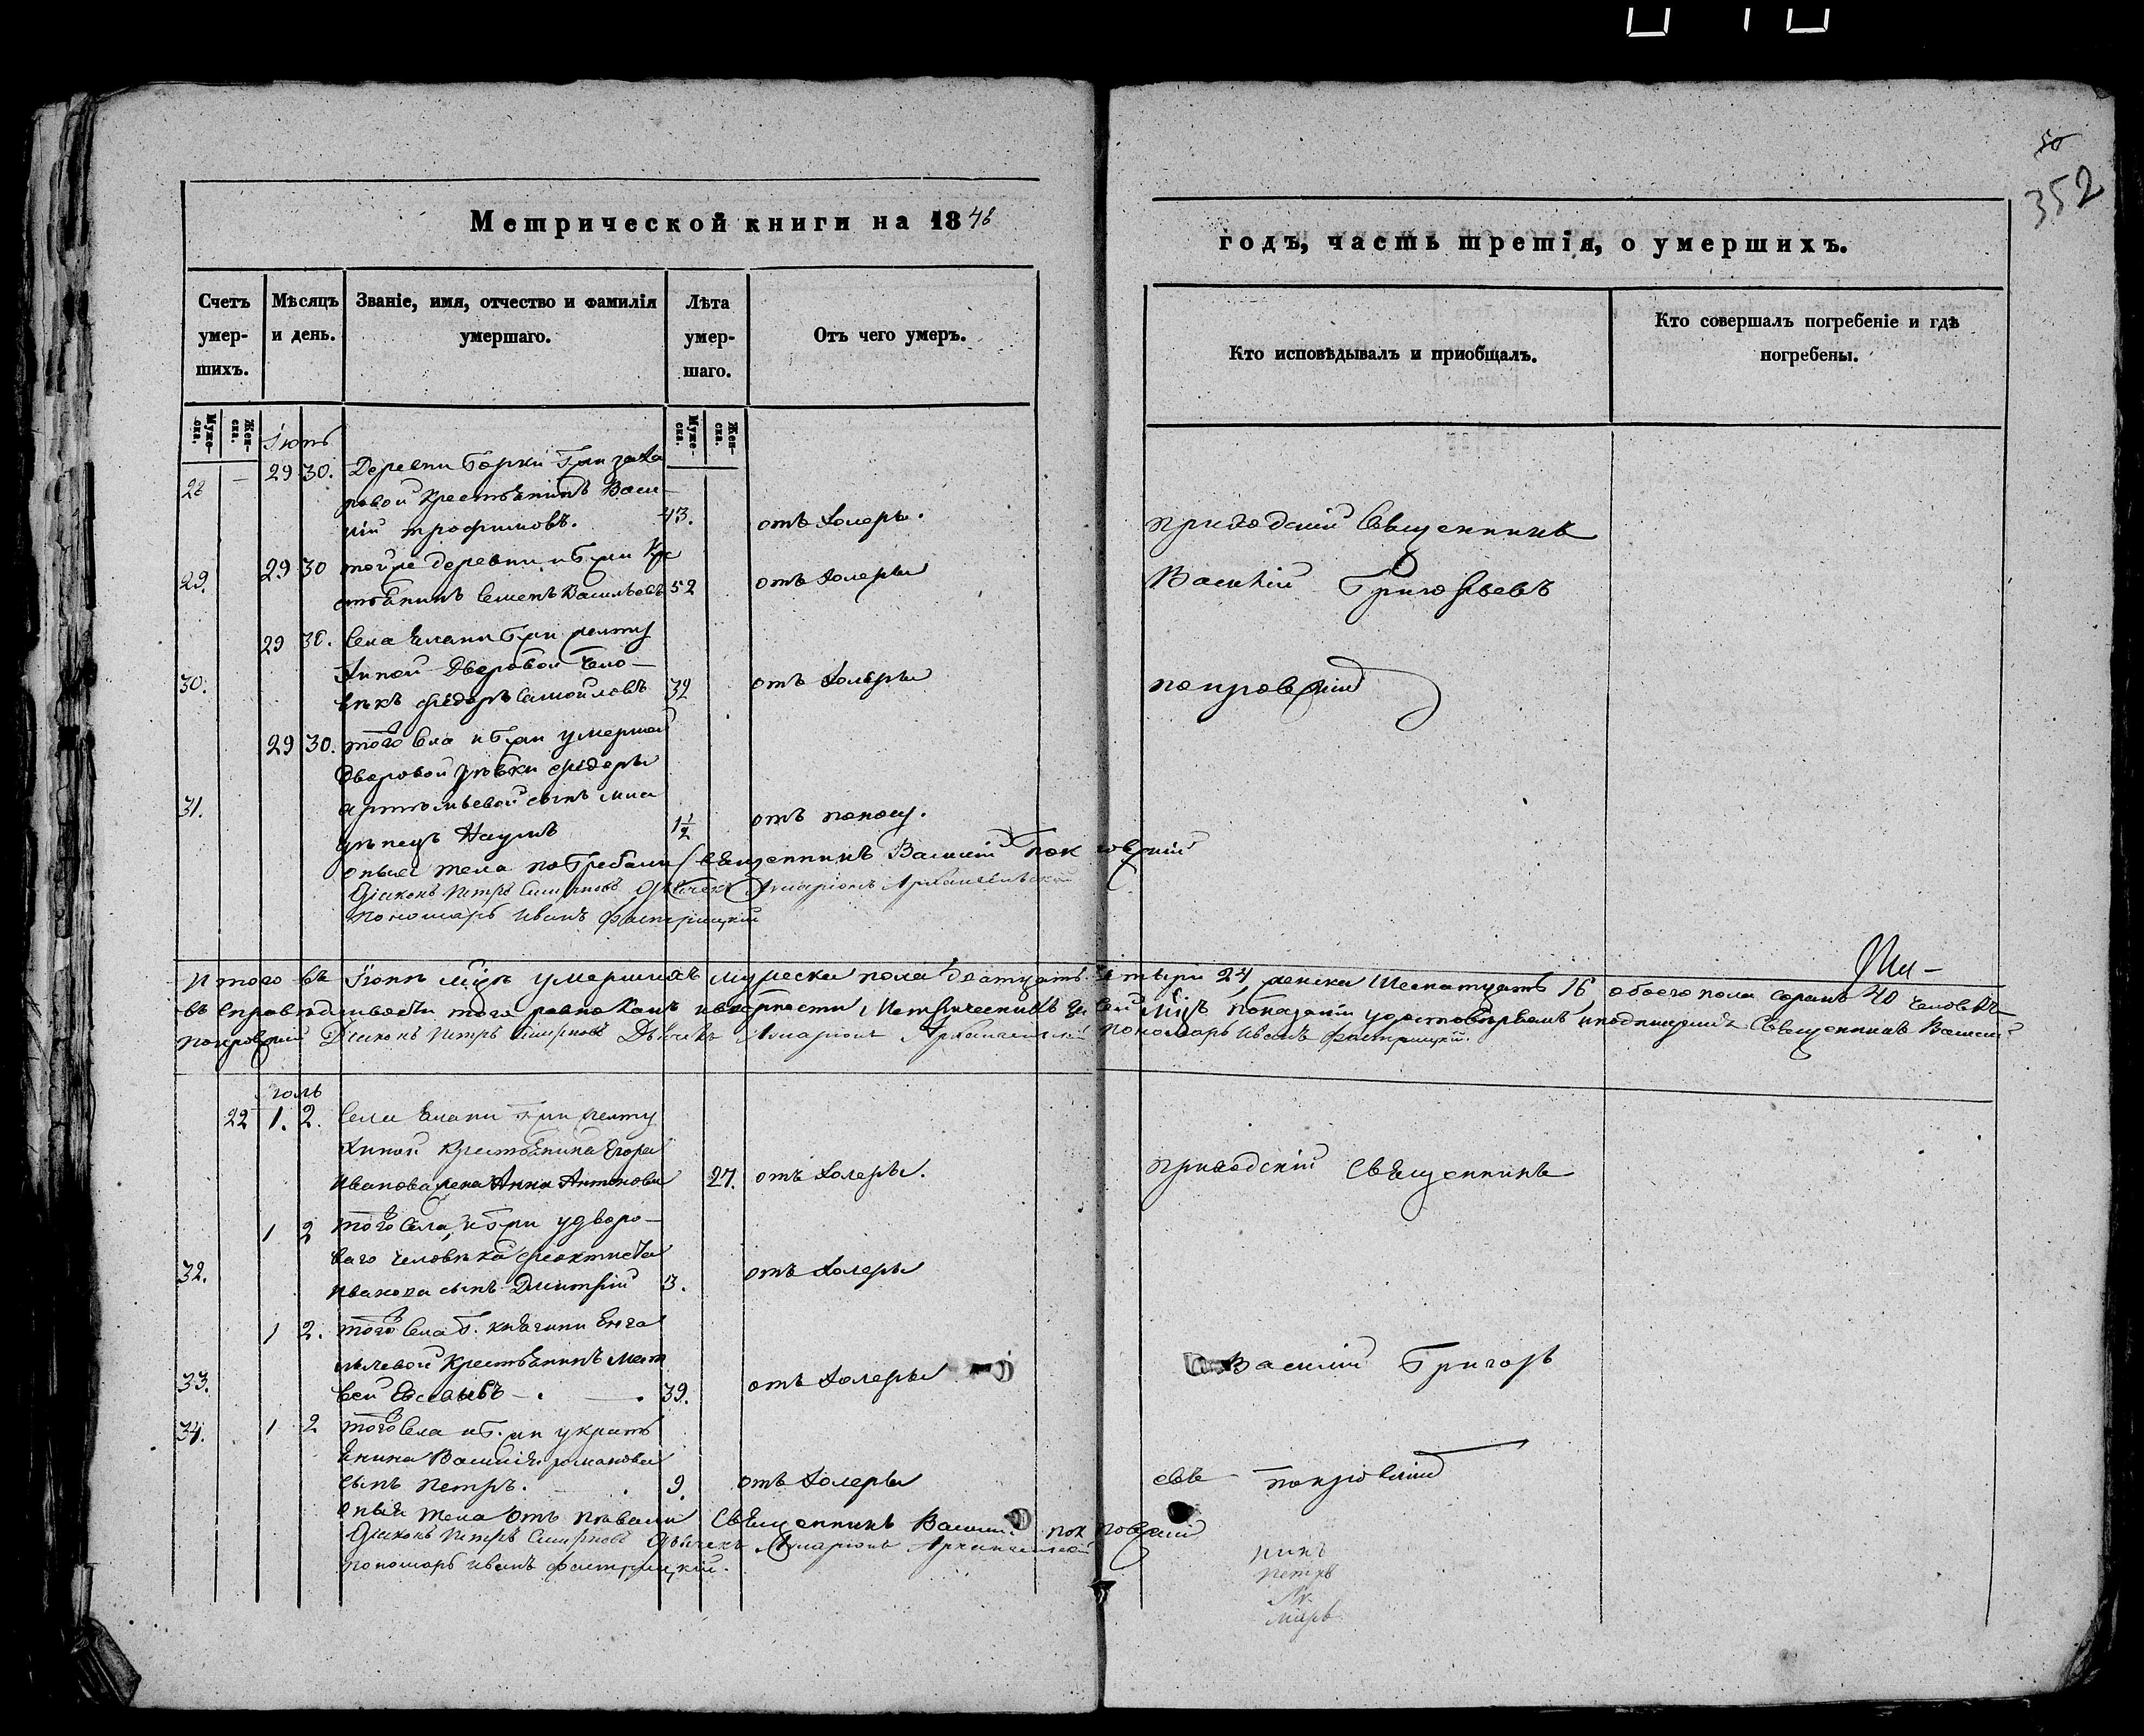 50
352
Метрической книги на 1848
годъ, часть третія, о умершихъ.
Счетъ умер-шихъ.
Мѣсяцъ и день.
Званіе, имя, отчество и фамилія умершаго.
Лѣта умер-шаго.
Отъ чего умеръ.
Кто исповѣдывалъ и приобщалъ.
Кто совершалъ погребеніе и гдѣ погребены.
Муже-ска.
Жен-ска.
Муже-ска.
Жен-ска.
Іюнь
28 — 29 30. Деревни Борки Г жи Заха
ровой крестьянинъ Васи-
лій Трофимовъ. 43. отъ холеры.
приходскій Священникъ
29. 29 30 тойже деревни и Г жи кре
стьянинъ Семенъ Васильевъ 52 отъ холеры
Василій Григорьевъ
29 30. Села Елани Г жи желту
хиной дворовой чело-
30. векъ Федоръ Самойловъ 32 отъ холеры
покровскій
29 30. того Села и Г жи умершей
дворовой девки Федоры
31. Артемьевой сынъ мла
денецъ Наумъ 1 1/2 отъ поносу.
оныя тела погребали Священникъ Василій Покровскій
Діаконъ Петръ Смирновъ Дьячекъ Иларіонъ Архангельской
Пономарь Иванъ
Итого въ Іюне мцѣ умершихъ мужеска пола дватцать четыри 24 женска шеснатцать 16 обоего пола сорокъ 40 человекъ
въ справедливости того равно какъ и верности Метрическихъ
покровскій Діаконъ Петръ Смирновъ Дьячекъ Иларіонъ Архангельской Пономарь Иванъ
Іюль
22 1. 2. Села Елани Г жи желту
хиной крестьянина Егора
Иванова жена Анна Антонова 27. отъ холеры.
приходскій Священникъ
1 2 того Села и Г жи у дворо-
ваго человека Феоктиста
32. Иванова сынъ Дмитрій 3. отъ холеры
1 2. того Села Г. княгини Енга
лычевой крестьянинъ Мат
33. вей 39. отъ холеры
Василій Григорь
34. 1 2 того Села и Г. жи у крить
янина Василія Романова
сынъ Петръ. 9. отъ холеры
евъ покровскій
оныя тела отъ Священникъ Василій покровскій
Діаконъ Петръ Смирновъ Дьячекъ Иларіонъ Архангельской
Пономарь Иванъ
никъ
Петръ
марь